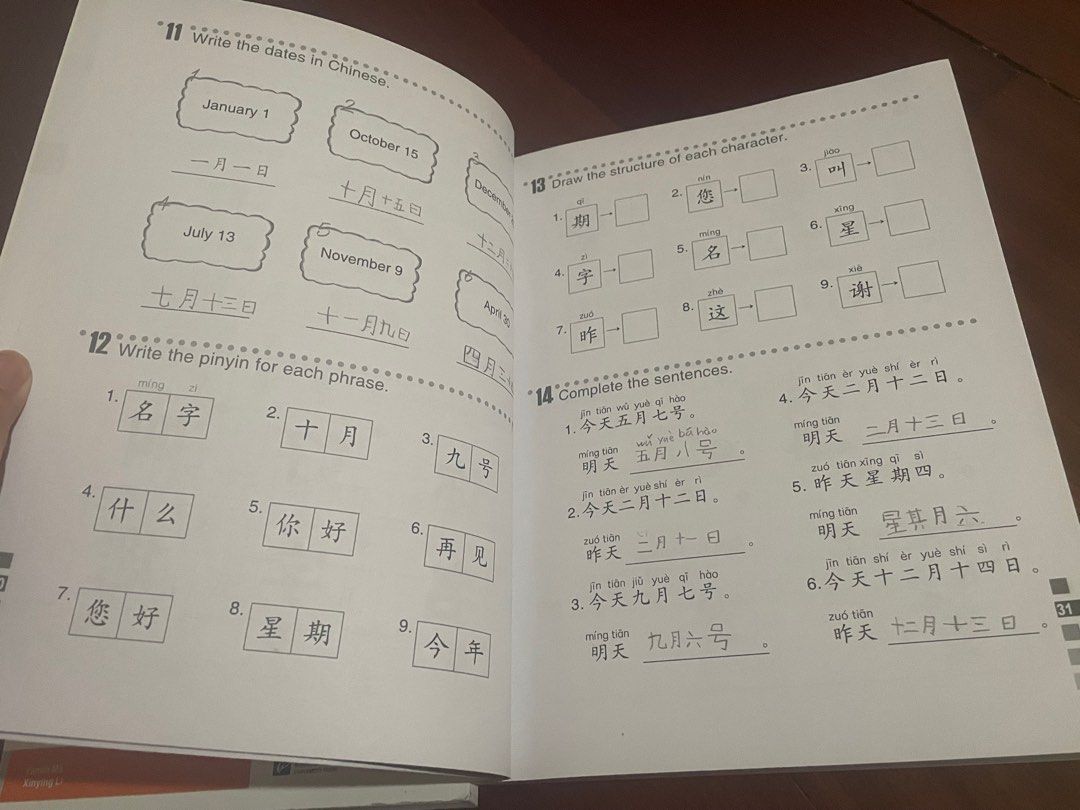 11 Write the dates in Chinese.
1
January 1
一月一日
2
October 15
十月十五日
3
December
十二月二
4
July 13
七月十三日
5
November 9
十一月九日
6
April 30
四月三十
12 Write the pinyin for each phrase.
1. míng zì
名字
2. 十月
3. 九号
4. 什么
5. 你好
6. 再见
7. 您好
8. 星期
9. 今年
13 Draw the structure of each character.
1. qī 期 →
2. nín 您 →
3. jiào 叫 →
4. zì 字 →
5. míng 名 →
6. xīng 星 →
7. zuó 昨 →
8. zhè 这 →
9. xiè 谢 →
14 Complete the sentences.
jīn tiān wǔ yuè qī hào
1. 今天五月七号。
wǔ yuè bā hào
míng tiān
明天 五月八号。
jīn tiān èr yuè shí èr rì
2. 今天二月十二日。
zuó tiān
昨天 二月十一日。
jīn tiān jiǔ yuè qī hào
3. 今天九月七号。
míng tiān
明天 九月六号。
jīn tiān èr yuè shí èr rì
4. 今天二月十二日。
míng tiān
明天 二月十三日。
zuó tiān xīng qī sì
5. 昨天星期四。
míng tiān
明天 星其月六。
jīn tiān shí èr yuè shí sì rì
6. 今天十二月十四日。
zuó tiān
昨天 十二月十三日。
31
Xinying Li